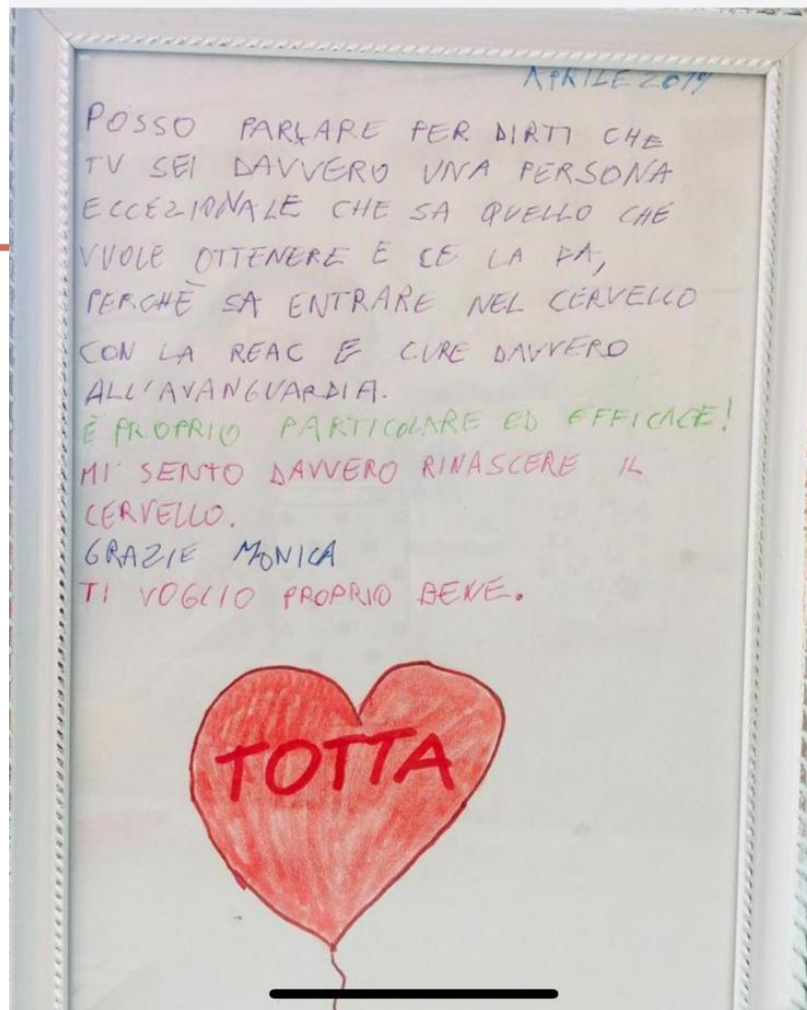 APRILE 2019
POSSO PARLARE PER DIRTI CHE
TU SEI DAVVERO UNA PERSONA
ECCEZIONALE CHE SA QUELLO CHE
VUOLE OTTENERE E CE LA FA,
PERCHÈ SA ENTRARE NEL CERVELLO
CON LA REAC E CURE DAVVERO
ALL'AVANGUARDIA.
È PROPRIO PARTICOLARE ED EFFICACE!
MI SENTO DAVVERO RINASCERE IL
CERVELLO.
GRAZIE MONICA
TI VOGLIO PROPRIO BENE.
TOTTA